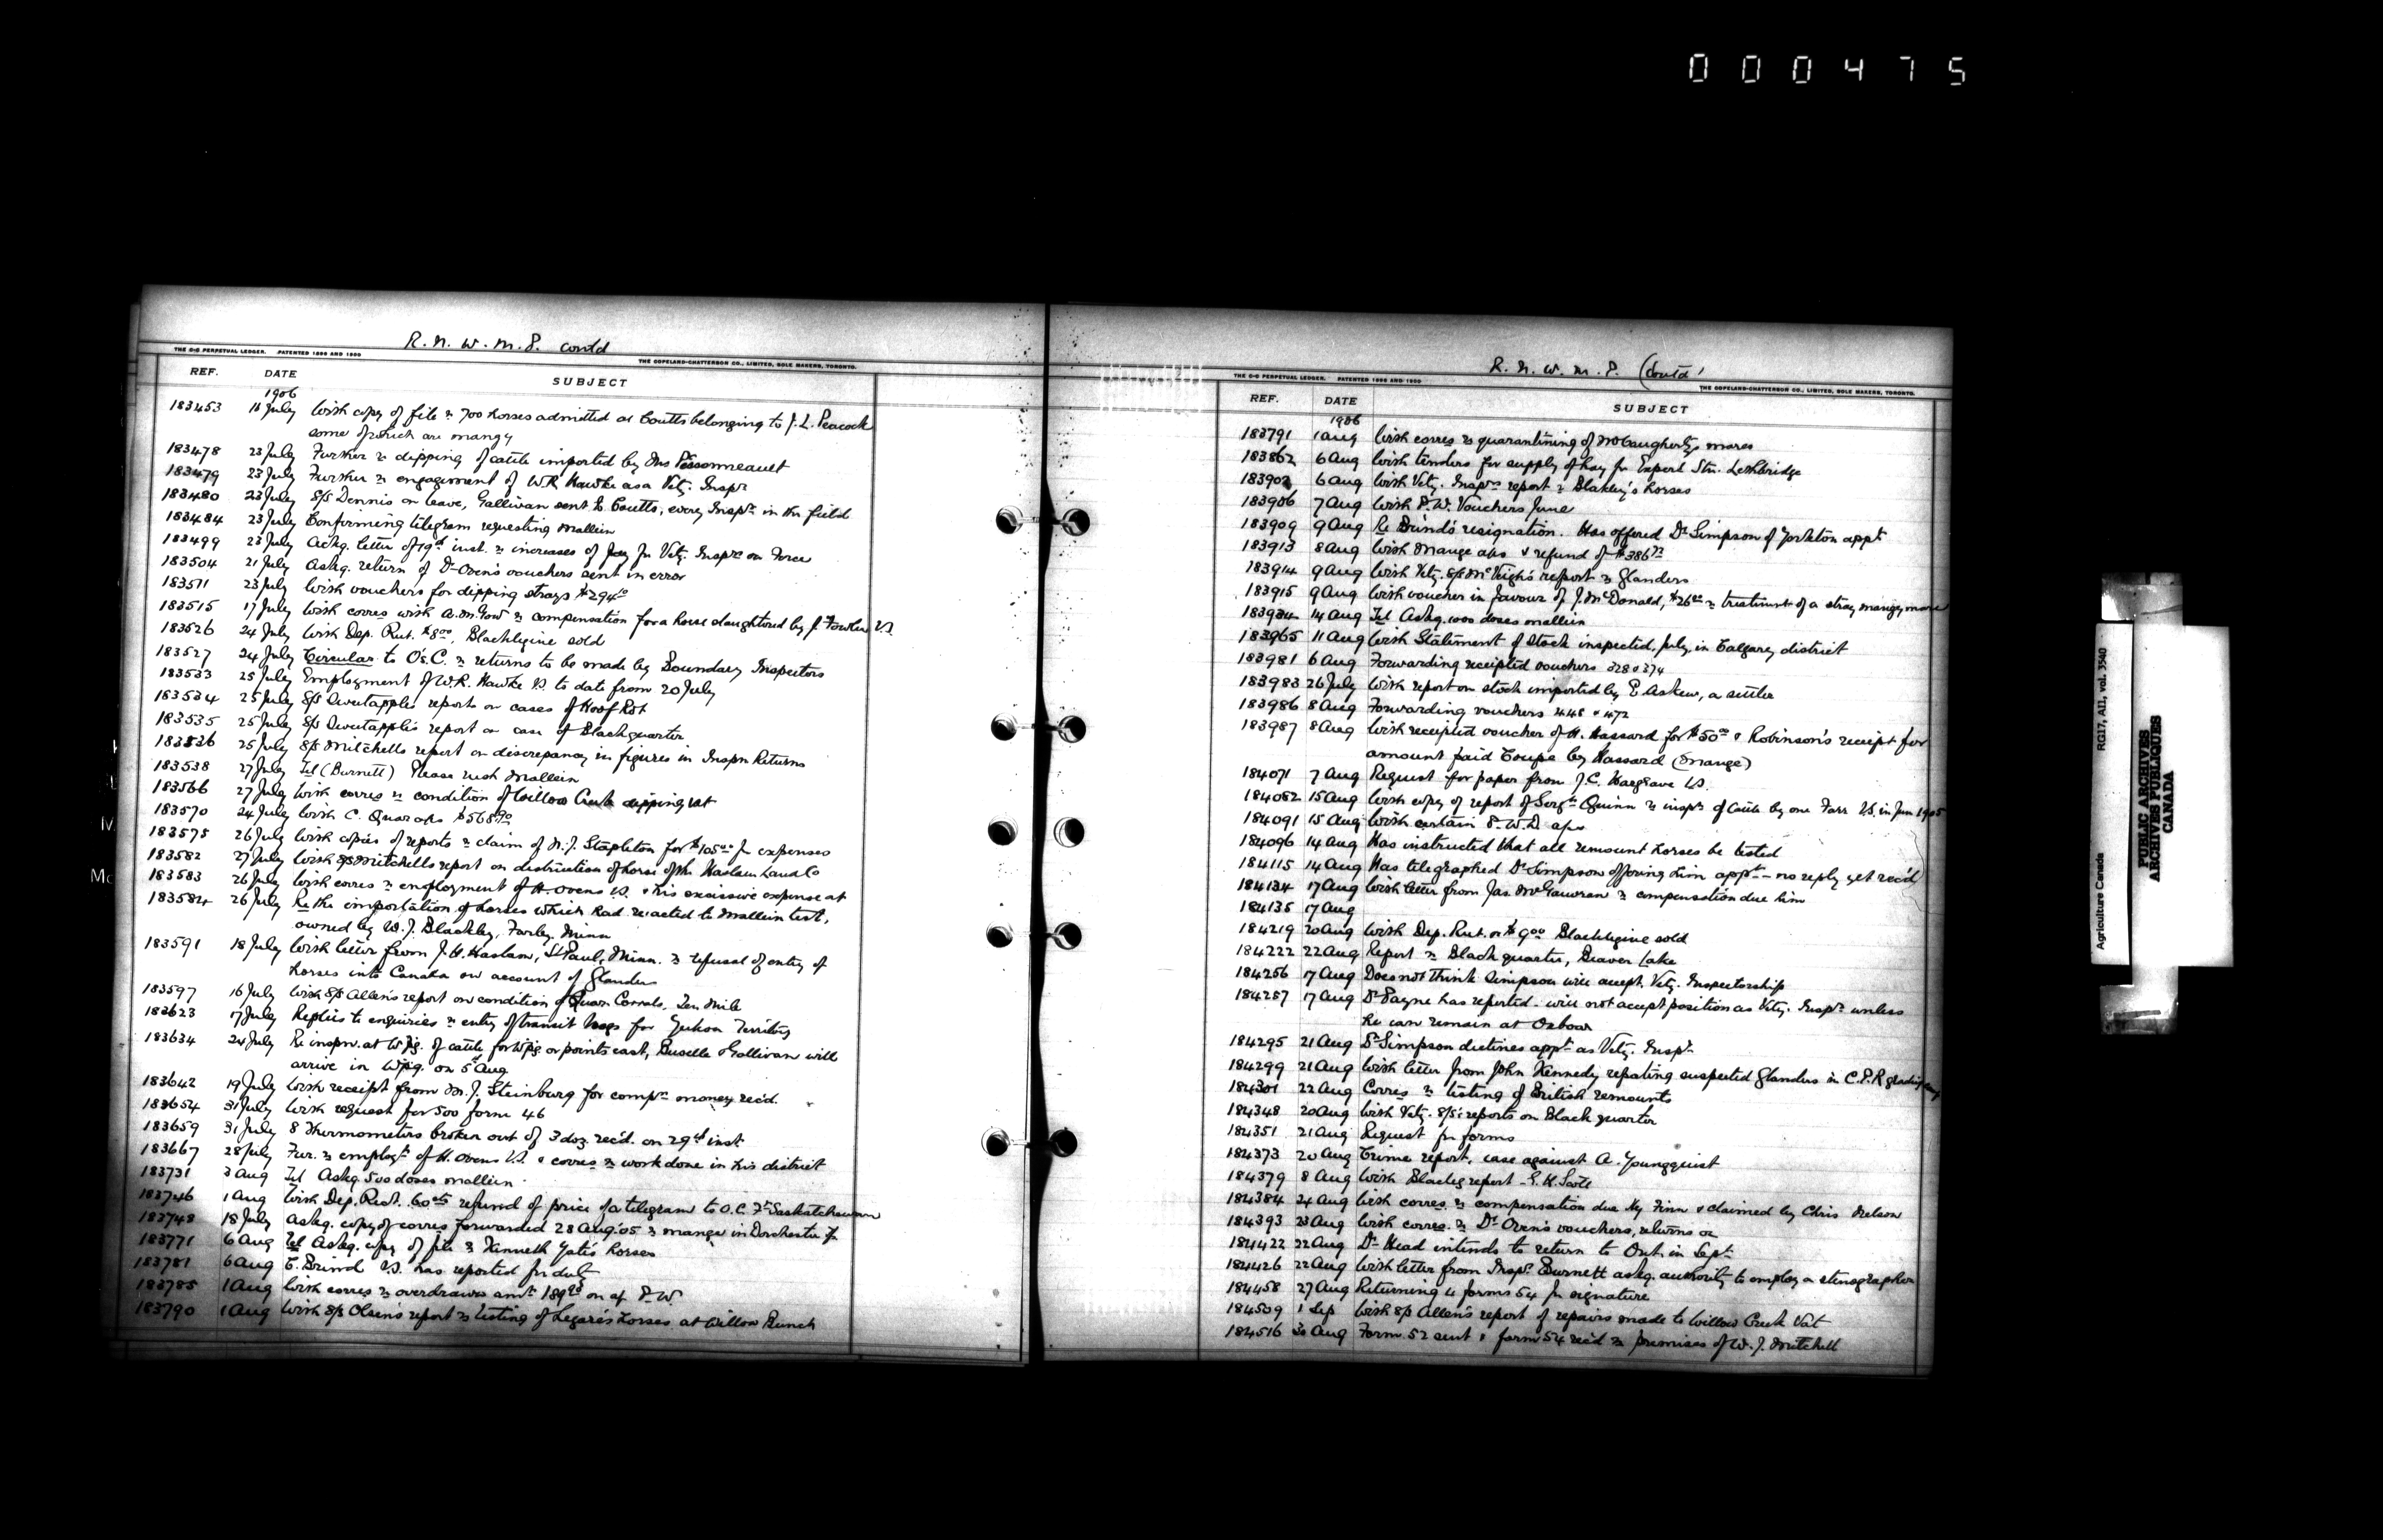 000475
R. N. W. M. P. contd
THE C-C PERPETUAL LEDGER. PATENTED 1896 AND 1900
THE COPELAND-CHATTERSON CO., LIMITED, SOLE MAKERS, TORONTO.
REF. DATE SUBJECT
1906
183453 18 July With copy of file re 700 horses admitted at Coutts belonging to J. L. Peacock
some of which are mangy
183478 23 July Further re dipping of cattle imported by Mrs Pessonneault
183479 23 July Further re engagement of W.R. Hawke as a Vety. Inspr
183480 23 July S/S Dennis on leave, Gallivan sent to Coutts, every Inspr. in the field
183484 23 July Confirming telegram requesting mallein
183499 23 July Ackg. letter of 19th inst. re increases of pay for Vety. Insprs on Force
183504 21 July Askg. return of Dr Oven's vouchers sent in error
183511 23 July With vouchers for dipping strays $294
183515 17 July With corres with A.M. Gow re compensation for a horse slaughtered by J. Fowler V.S.
183526 24 July With Dep. Rct. $8.00, Blacklegine sold
183527 24 July Circular to O's.C. re returns to be made by Boundary Inspectors
183533 25 July Employment of W.R. Hawke V.S. to date from 20 July
183534 25 July S/S Sweetapple's report on cases of Hoof Rot
183535 25 July S/S Sweetapple's report on case of Blackquarter
183536 25 July S/S Mitchell's report on discrepancy in figures in Inspn Returns
183538 27 July Tel (Burnett) Please rush mallein
183566 27 July With corres re condition of Willow Creek dipping vat
183570 24 July With C. Quar a/cs $565.90
183575 26 July With copies of reports re claim of N.J. Stapleton for $105.00 for expenses
183582 27 July With S/S Mitchell's report on destruction of horse of the Haslam Land Co
183583 26 July With corres re employment of H. Ovens V.S. & his excessive expense a/c
183584 26 July Re the importation of horses which had reacted to mallein test,
owned by W. J. Blackley, Farley, Minn
183591 18 July With letter from J. H. Haslam, St Paul, Minn. re refusal of entry of
horses into Canada on account of Glanders
183597 16 July With S/S Allen's report on condition of Quar Corrals, Ten Mile
183623 17 July Replies to enquiries re entry of transit hogs for Yukon Territory
183634 24 July Re inspn. at Wpg. of cattle for Wpg. or points east, & Gallivan will
arrive in Wpg. on 5 Aug
183642 19 July With receipt from M. J. Steinburg for compn. money recd.
183654 31 July With request for 500 form 46
183659 31 July 8 thermometers broken out of 3 doz. rec'd. on 29th inst
183667 28 July Fur. re employt of H. Ovens V.S. & corres re work done in his district
183731 3 Aug Tel Askg. 500 doses mallein
183746 1 Aug With Dep. Rect. 60cts refund of price of a telegram to O.C. Ft Saskatchewan
183748 18 July Askg. copy of corres forwarded 28 Aug '05 re mange in Dorchester
183771 6 Aug Tel Askg. copy of file re Kenneth Yates horses
183781 6 Aug C. Brind V.S. has reported for duty
183785 1 Aug With corres re overdrawn amt. 189.90 on a/c P.W.
183790 1 Aug With S/S Olsen's report re testing of Legare's horses at Willow Bunch
R. N. W. M. P. (Contd)
THE C-C PERPETUAL LEDGER. PATENTED 1896 AND 1900
THE COPELAND-CHATTERSON CO., LIMITED, SOLE MAKERS, TORONTO.
REF. DATE SUBJECT
1906
183791 1 Aug With corres re quarantining of McGaugherty's mares
183862 6 Aug With tenders for supply of hay for Experl Stn. Lethbridge
183902 6 Aug With Vety. Insprs report re Blakley's horses
183906 7 Aug With P.W. Vouchers June
183909 9 Aug Re Brind's resignation. Has offered Dr Simpson of Yorkton appt
183913 8 Aug With Mange a/cs & refund of $386.73
183914 9 Aug With Vety. S/S McVeigh's report re Glanders
183915 9 Aug With voucher in favour of J. McDonald, $26.00 re treatment of a stray mangy mare
183934 14 Aug Tel Askg. 1000 doses mallein
183965 11 Aug With Statement of Stock inspected, July, in Calgary district
183981 6 Aug Forwarding receipted vouchers 328 & 374
183983 26 July With report on stock imported by E Askew, a settler
183986 8 Aug Forwarding vouchers 448 & 472
183987 8 Aug With receipted voucher of H. Hassard for $50.00 & Robinson's receipt for
amount paid Coupe by Hassard (Mange)
184071 7 Aug Request for paper from J. C. Hargrave V.S.
184082 15 Aug With copy of report of Sergt. Quinn re inspn of Cattle by one Farr V.S. in Jun 1905
184091 15 Aug With certain P.W.D. a/cs
184096 14 Aug Has instructed that all remount horses be tested
184115 14 Aug Has telegraphed Dr Simpson offering him appt - no reply yet rec'd
184134 17 Aug With letter from Jas McGauvran re compensation due him
184135 17 Aug
184219 20 Aug With Dep. Rct. or $9.00 Blacklegine sold
184222 22 Aug Report re Black quarter, Beaver Lake
184256 17 Aug Does not think Simpson will accept Vety. Inspectorship
184257 17 Aug Dr Payne has reported - will not accept position as Vety. Inspr. unless
he can remain at Oxbow
184295 21 Aug Dr Simpson declines appt as Vety. Inspr.
184299 21 Aug With letter from John Kennedy repating suspected Glanders in C.P.R grading camp
184301 22 Aug Corres re testing of British remounts
184348 20 Aug With Vety. S/S's reports on Black quarter
184351 21 Aug Request for forms
184373 20 Aug Crime report, case against A. Youngquist
184379 8 Aug With Blackleg report - E. H. Scott
184384 24 Aug With corres re compensation due Hy Finn & claimed by Chris Nelson
184393 23 Aug With corres. re Dr. Oven's vouchers, returns
184422 22 Aug Dr Head intends to return to Ont. in Sept
184426 22 Aug With letter from Inspr. Burnett askg. authority to employ a stenographer
184458 27 Aug Returning 4 forms 54 for signature
184509 1 Sep With S/S Allen's report of repairs made to Willow Creek Vat
184516 30 Aug Form 52 sent & form 54 rec'd re premises of W. J. Mitchell
Agriculture Canada RG17, AII, vol. 3540
PUBLIC ARCHIVES
ARCHIVES PUBLIQUES
CANADA